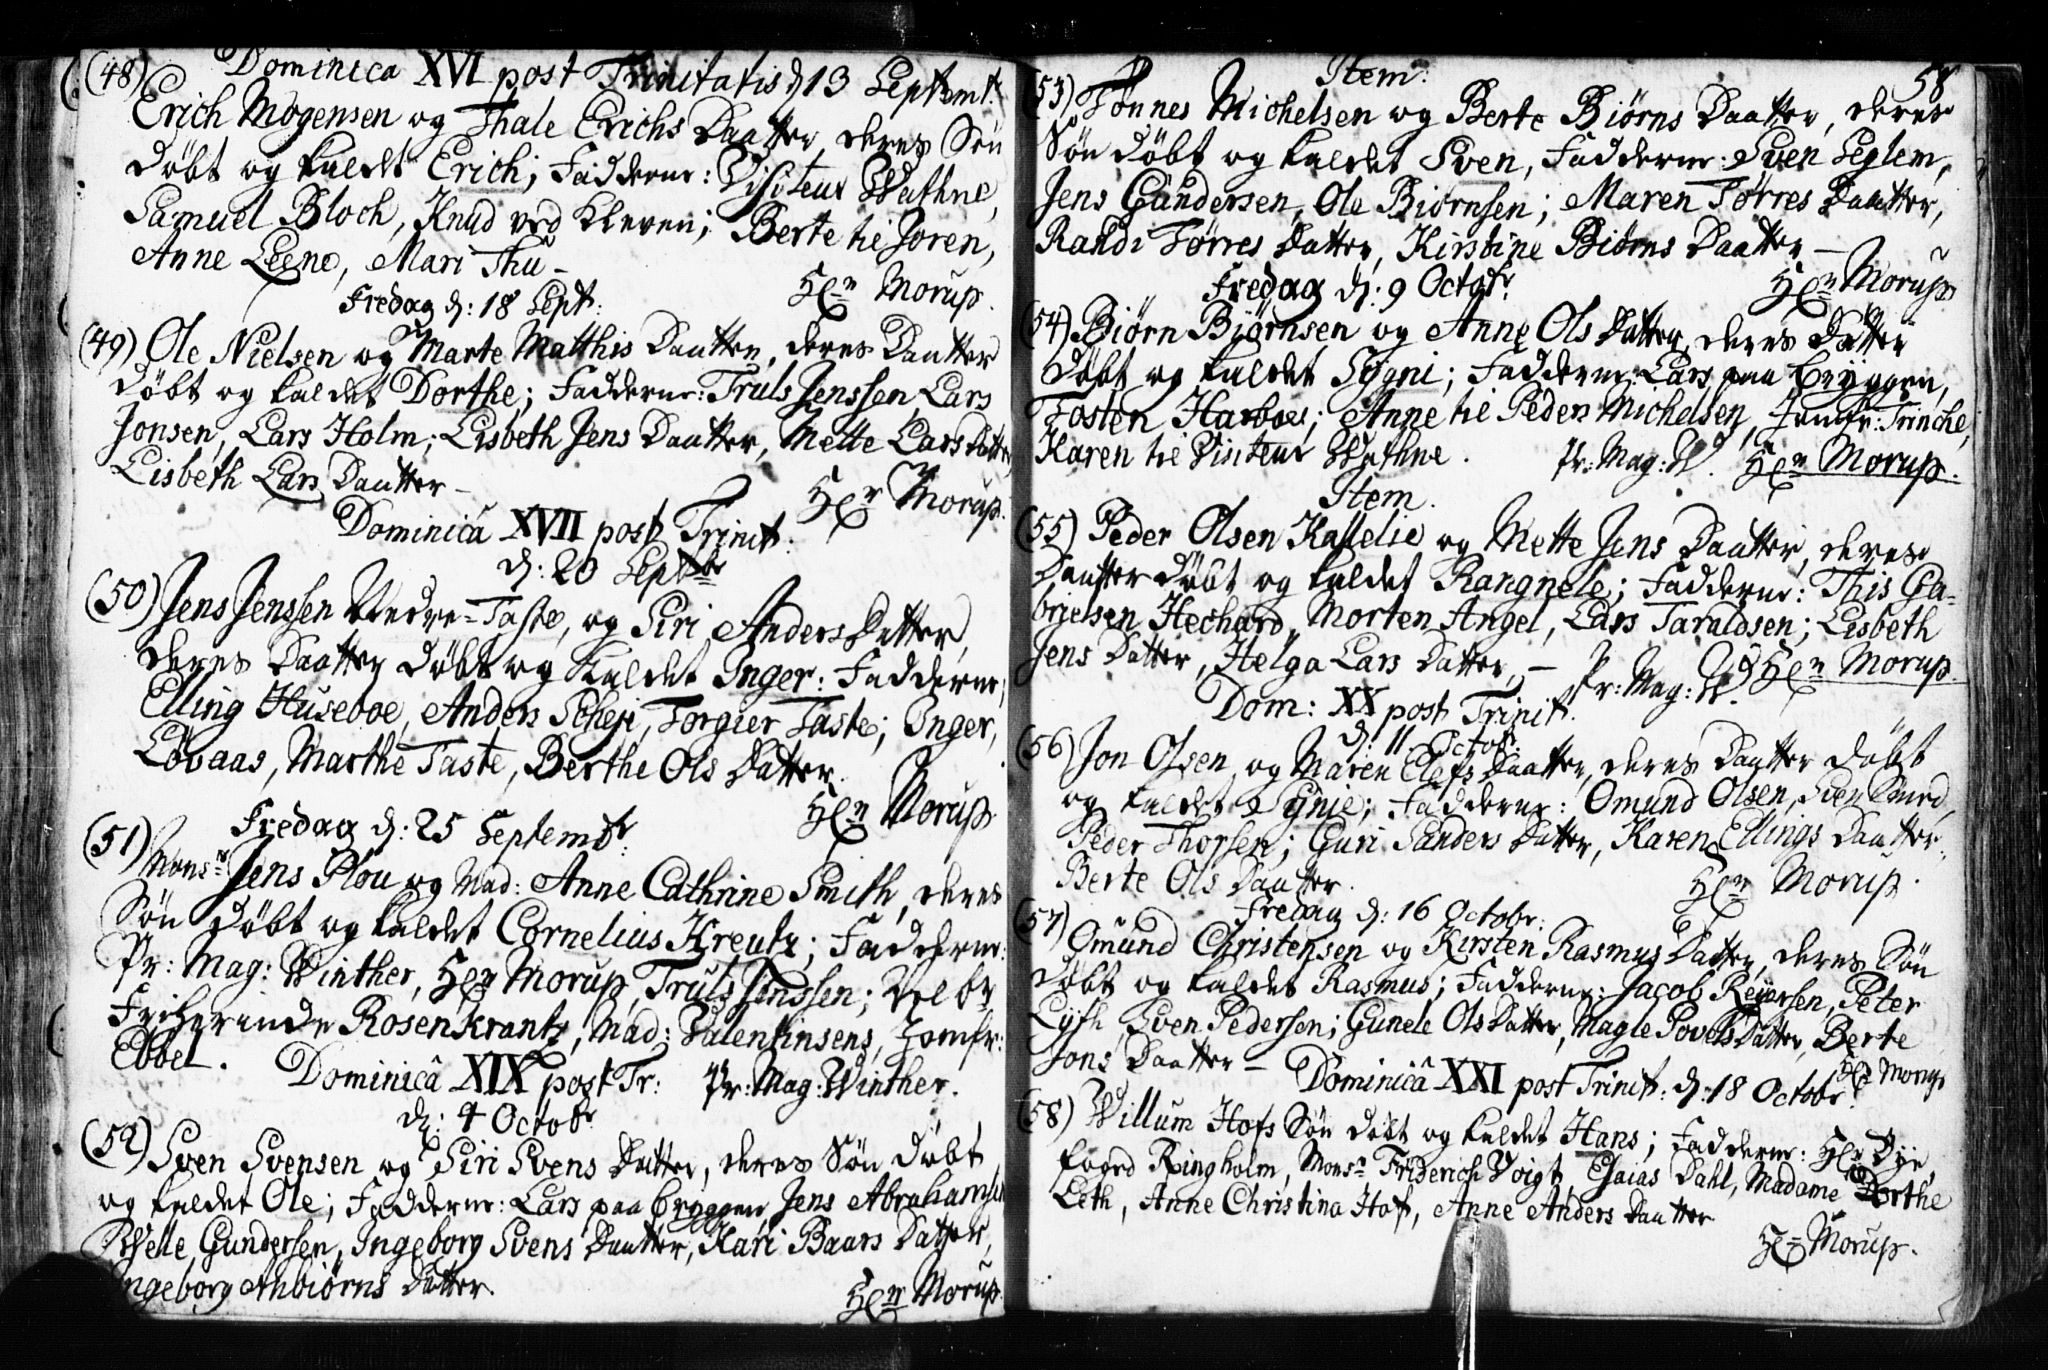 (48) Dominica XVI post Trinitatis d 13 Septemt.
Erich Mogensen og Thale Erichs Daatter, deres Søn
døbt og kaldet Erich; Fadderne: Visiteur Wathne,
Samuel Bloch, Knud ved Kleven; Berte til Joren,
Anne Leene, Mari Thu –
Hr. Morup.
Fredag d: 18 Sept:
(49) Ole Nielsen og Marte Matthis Daatter, deres Daatter
døbt og kaldet Dorthe; Fadderne: Truls Jenssen, Lars
Jonsen, Lars Holm; Lisbeth Jens Daatter, Mette Lars Datter
Lisbeth Lars Daatter –
Hr. Morup.
Dominicâ XVII post Trinit:
d: 20 Septbr
(50) Jens Jenssen Nedre-Taste, og Siri Anders Datter,
deres Daatter døbt og kaldet Inger: Fadderne,
Elling Huseboe, Anders Scheje, Torgier Taste; Inger,
Løvaas, Marthe Taste, Berthe Ols Datter.
Hr. Morup
Fredag d: 25 Septembr:
(51) Monsr Jens Plou og Mad: Anne Cathrine Smith, deres
Søn døbt og kaldet Cornelius Kreutz; Fadderne:
Pr: Mag: Winther, Hr Morup, Truls Jenssen; Velbr
Friherinde Rosenkrantz, Mad: Valentinsens, Jomfr:
Ebbel.
Pr: Mag: Winther.
Dominicâ XIX post Tr:
d: 4 Octobr
(52) Sven Svensen og Siri Svens Datter, deres Søn døbt
og kaldet Ole; Fadderne: Lars paa bryggen, Jens Abrahamsen
Gundersen, Ingeborg Svens Daatter, Kari Baars Datter,
Ingeborg Anbiørns Datter.
Hr. Morup.
58
Item:
(53) Tønnes Michelsen og Berte Biørns Daatter, deres
Søn døbt og kaldet Sven, Fadderne: Sven Seglem,
Jens Gundersen, Ole Biørnsen; Maren Tørres Daatter,
Randi Tørres Datter, Kirstine Biørns Daatter –
Hr. Morup
Fredag d: 9 Octobr.
(54) Biørn Biørnsen og Anne Ols Datter, deres Datter
døbt og kaldet Sygni; Fadderne: Lars paa bryggen,
Tosten Harboe; Anne til Peder Michelsen, Jomfr: Trinche,
Karen til Visiteur Wathne.
Pr: Mag: W. Hr. Morup.
Item.
(55) Peder Olsen Kastelie og Mette Jens Daatter, deres
Daatter døbt og kaldet Rangnele; Fadderne: This Ga-
brielsen Hechard, Morten Angel, Lars Taraldsen; Lisbeth
Jens Datter, Helga Lars Datter, –
Pr: Mag: W. og Hr. Morup.
Dom: XX post Trinit.
d: 11 Octob:
(56) Jon Olsen og Maren Elefs Daatter, deres Daatter døbt
og kaldet Synie; Fadderne: Omund Olsen, Sven Smed,
Peder Thorsen; Guri Sanders Datter, Karen Ellings Daatter,
Berte Ols Daatter.
Hr. Morup.
Fredag d: 16 Octobr:
(57) Omund Christensen og Kirsten Rasmus Datter, deres Søn
døbt og kaldet Rasmus; Fadderne: Jacob Reyersen, Peter
Lyth, Sven Pedersen; Gunele Ols Datter, Magle Povels Datter, Berte
Jons Daatter –
Hr Morup
Dominicâ XXI post Trinit: d: 18 Octobr.
(58) Willum Hofs Søn døbt og kaldet Hans; Fadderne: Hr Bye,
foged Ringholm, Monsr Friderich Voigt, Esaias Dahl, Madame Dorthe
Leth, Anne Christina Hof, Anne Anders Daatter
Hr. Morup.